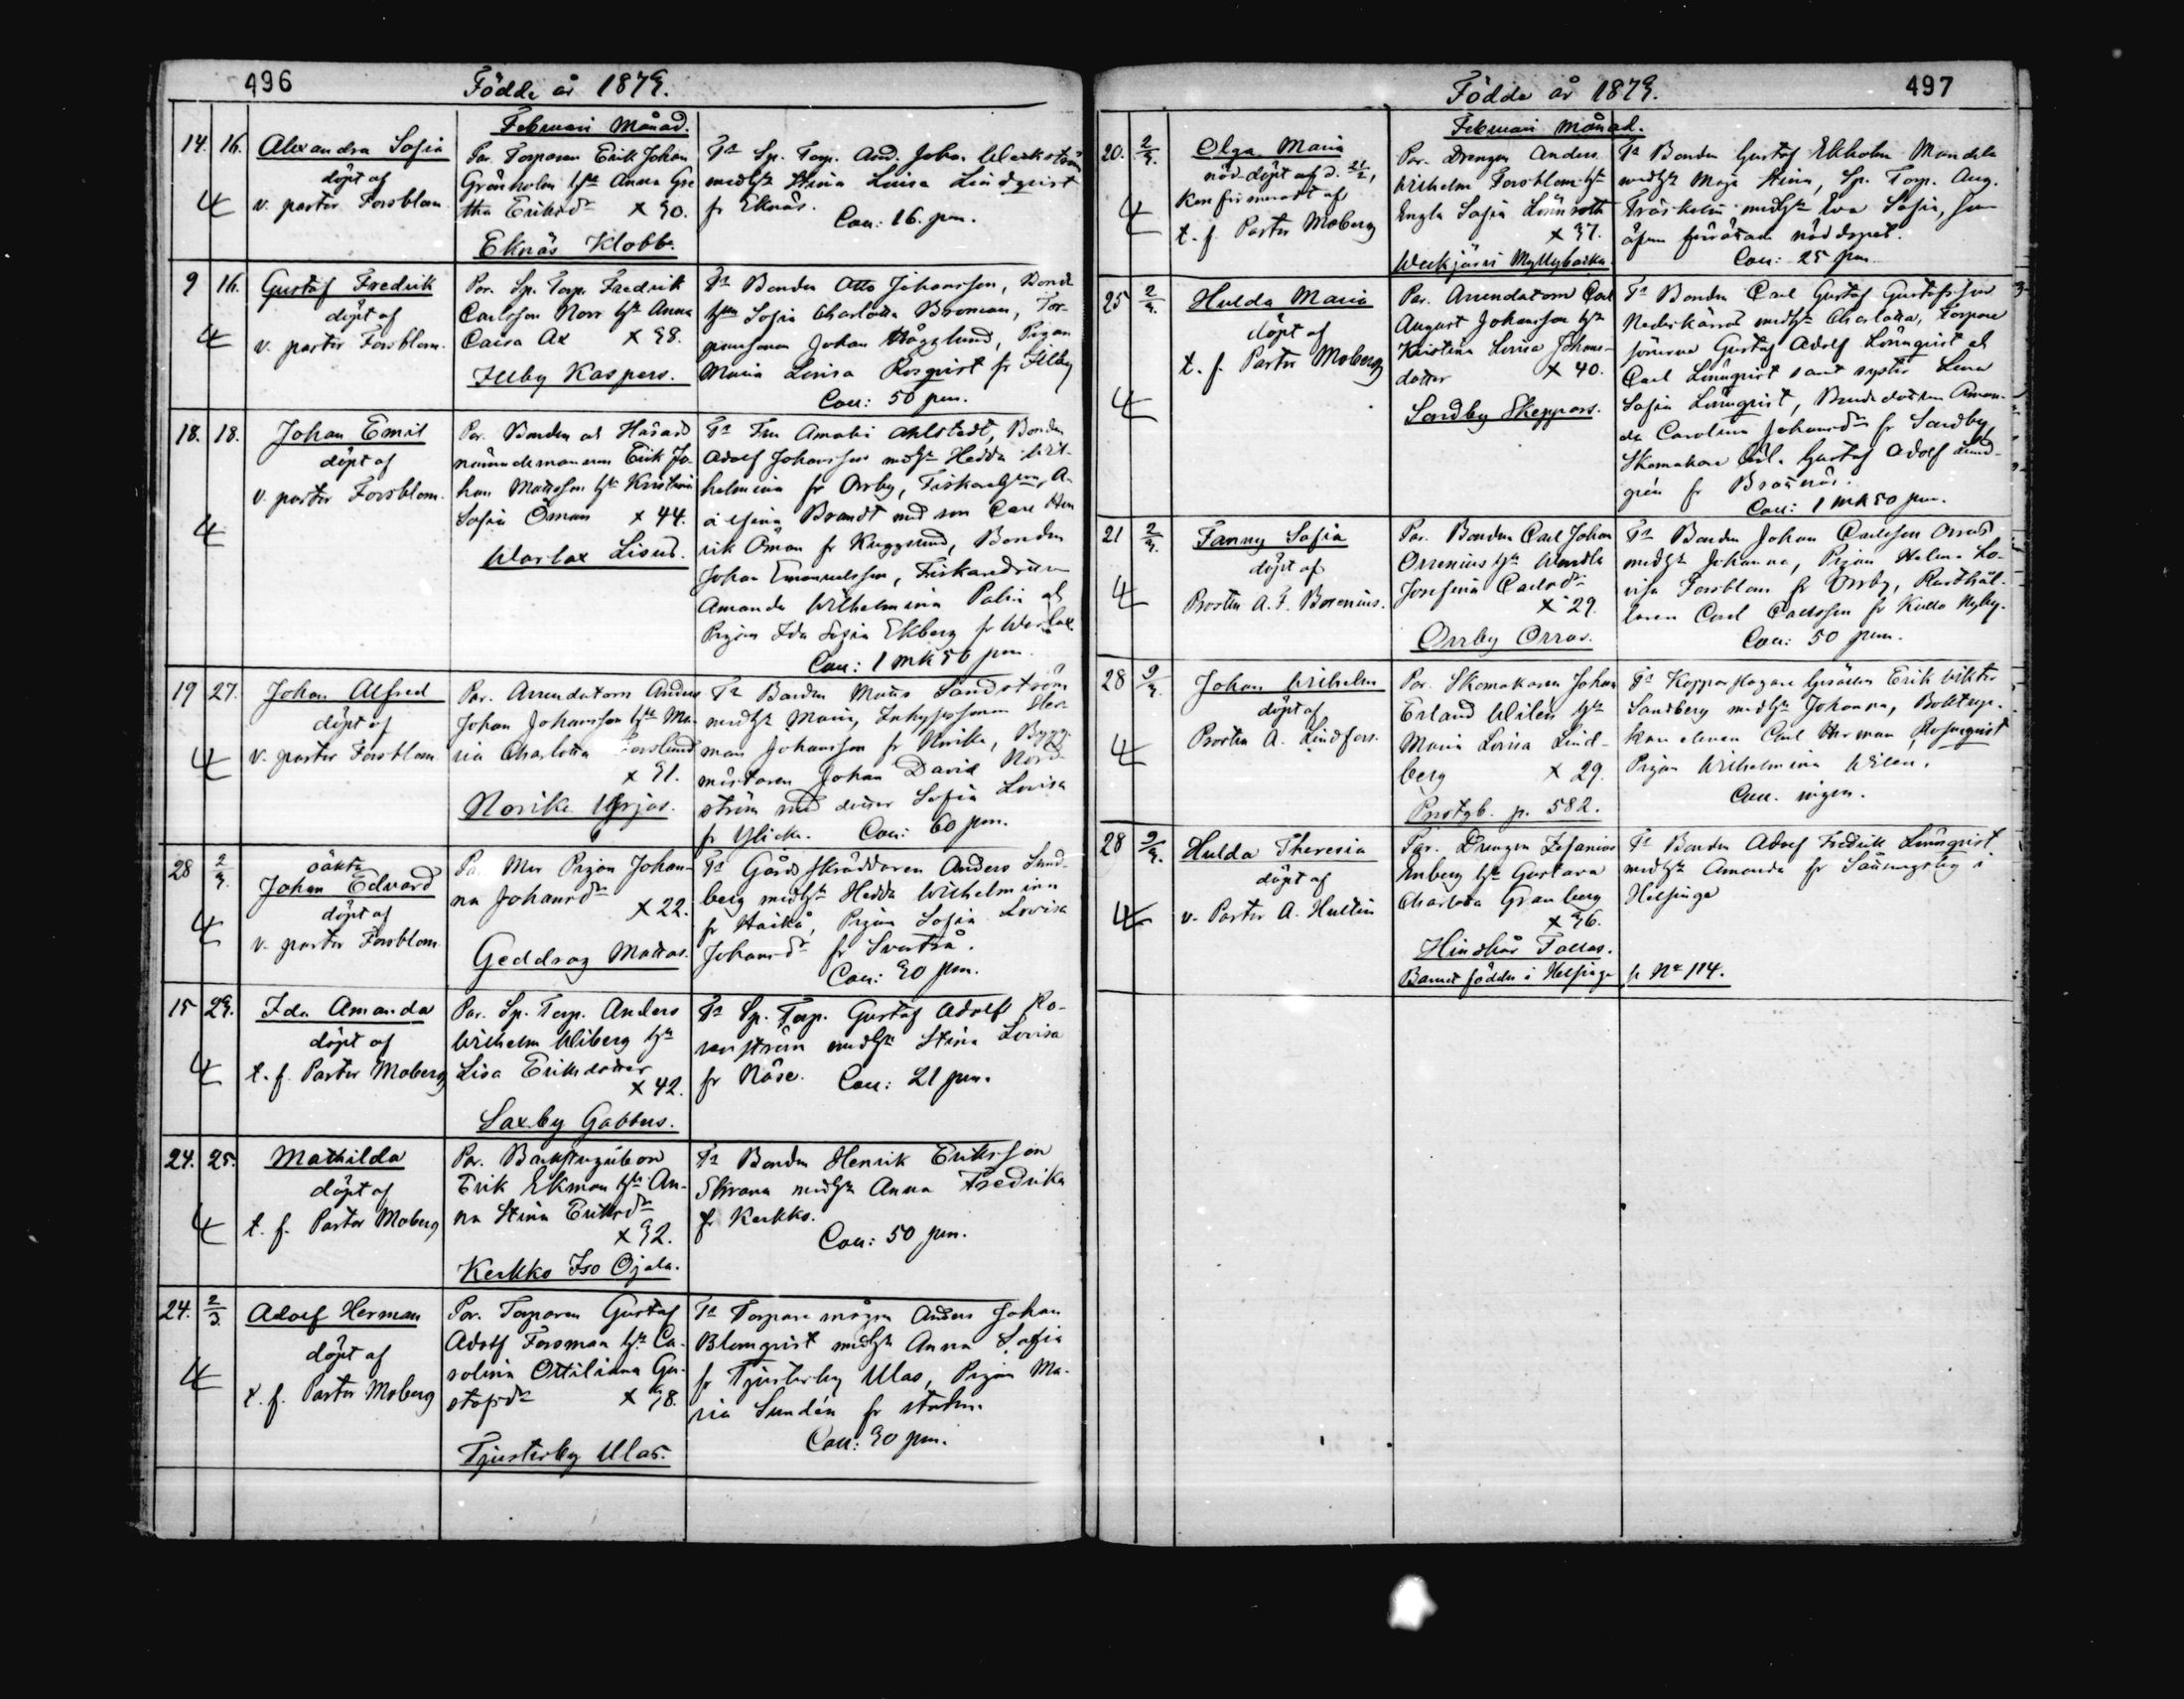 496
Födde år 1873.
Februari Månad.
14. 16. Alexandra Sofia
döpt af
v. pastor Forsblom.
Par. Torparen Erik Johan
Grönholm hst Anna Gre
tha Eriksdr x 30.
Eknäs Klobb.
Tn Sp. Torp. And. Johan Weckström
medhst Stina Luisa Lindqvist
fr Eknäs.
Cou: 16. pm.
9 16. Gustaf Fredrik
döpt af
v. pastor Forsblom.
Par. Sp. Torp. Fredrik
Carlsson Norr hst Anna
Caisa Ax x 38.
Illby Kaspers.
Tn Bonden Otto Johansson, Bond
hm Sofia Charlotta Broman, Tor-
paresonen Johan Hägglund, Pigan
Maria Lovisa Rosqvist fr Illby
Cou: 50 pm.
18. 18. Johan Emil
döpt af
v. pastor Forsblom.
Par. Bonden och Härads
nämndemannen Erik Jo-
han Mattsson hst Kristina
Sofia Öman x 44.
Warlax Lisas.
Tn Fru Amalia Ahlstedt, Bonden
Adolf Johansson medhst Hedda Wil-
helmina fr Orrby,
Brandt med son Carl Hen
rik Öman fr Kuggsund, Bonden
Johan Emanuelsson,
Amanda Wilhelmina och
Pigan Ida Sofia Ekberg fr Warlax
Cou: 1 mk 50 pm.
19 27. Johan Alfred
döpt af
v. pastor Forsblom
Par. Arrendatorn Anders
Johan Johansson hst Ma-
ria Charlotta Forslund
x 31.
Norike Yrjas.
Tn Bonden Matts Sandström
medhst Maria, Her
man Johansson fr Norike, Bygg-
mästaren Johan David Nord-
ström med dotter Sofia Lovisa
fr Ylike. Cou: 60 pm.
28 2/3. oäkta
Johan Edvard
döpt af
v. pastor Forsblom
Pa. Mor Pigan Johan-
na Johansdr
x 22.
Geddrag Mattas.
Tn Gårdsskräddaren Anders Lind-
berg medhst Hedda Wilhelmina
fr Haikå, Pigan Sofia Lovisa
Johansdr fr Svartså.
Cou: 30 pm.
15 23. Ida Amanda
döpt af
t. f. Pastor Moberg
Par. Sp. Torp. Anders
Wilhelm Wiberg hst
Lisa Eriksdotter
x 42.
Saxby Gabbus.
Tn Sp. Torp. Gustaf Adolf Ro-
senström medhst Stina Lovisa
fr Näse. Cou: 21 pm.
24. 25. Mathilda
döpt af
t. f. Pastor Moberg
Par. Backstugubon
Erik Ekman hst An-
na Stina Eriksdr
x 32.
Kerkko Iso Ojala.
Tn Bonden Henrik Eriksson
medhst Anna Fredrika
fr Kerkko.
Cou: 50 pm.
24. 2/3. Adolf Herman
döpt af
t. f. Pastor Moberg
Par. Torparen Gustaf
Adolf Forsman hst Ca-
rolina Ottiliana Gu-
stafsdr x 38.
Tjusterby Ulas.
Tn Torparemågen Anders Johan
Blomqvist medhst Anna Sofia
fr Tjusterby Ulas, Pigan Ma-
ria Sundén fr staden.
Cou: 30 pm.
Födde år 1873.
497
Februari månad.
20. 2/3. Olga Maria
nöd-döpt af d. 21/2,
Konfirmeradt af
t. f. Pastor Moberg
Par. Drengen Anders
Wilhelm Forsblom hst
Engla Sofia Lönnroth
x 37.
Weckjärvi Myllybacka.
Tn Bonden Gustaf Ekholm Mandela
medhst Maja Stina, Sp. Torp. Aug.
Träskelin medhst Eva Sofia, som
äfven förrättade nöddopet.
Cou: 25 pm.
25 2/3. Hulda Maria
döpt af
t. f. Pastor Moberg
Par. Arrendatorn Carl
August Johansson hst
Kristina Lovisa Johans-
dotter x 40.
Sondby Skeppars.
Tn Bonden Carl Gustaf Gustafsson
Nederkärrs medhst Charlotta, Torpare
sönerne Gustaf Adolf Lönnqvist och
Carl Lönnqvist samt syster Lena
Sofia Lönnqvist, Bondedottern Aman-
da Carolina Johansdr fr Sondby,
Skomakare Carl Gustaf Adolf Lind-
grén fr
Cou: 1 mk 50 pm.
21 2/3. Fanny Sofia
döpt af
Prosten A. F. Borenius.
Par. Bonden Carl Johan
Orrenius hst Wendla
Josefina Carlsdr
x 29.
Orrby Orras.
Tn Bonden Johan Carlsson Orras
medhst Johanna, Pigan Helena Lo-
visa Forsblom fr Orrby, Rusthål-
laren Carl Carlsson fr Kullo Nyby.
Cou: 50 pm.
28 9/3. Johan Wilhelm
döpt af
Prosten A. Lindfors.
Par. Skomakaren Johan
Erland Wilén hst
Maria Lovisa Lind-
berg x 29.
Prestgb. p. 582.
Tn Kopparslagare Gesällen Erik Viktor
Sandberg medhst Johanna, Boktryc-
kareeleven Carl Herman Rosenqvist
Pigan Wilhelmina Wilen.
Cou. ingen.
28 9/3. Hulda Theresia
döpt af
v. Pastor A. Hultin
Par. Drengen Zefanias
Enberg hst Gustava
Charlotta Granberg
x 36.
Hindhår Tallas.
Barnet föddes i Helsinge fr No 114.
Tn Bonden Adolf Fredrik Lönnqvist
medhst Amanda fr i
Helsinge